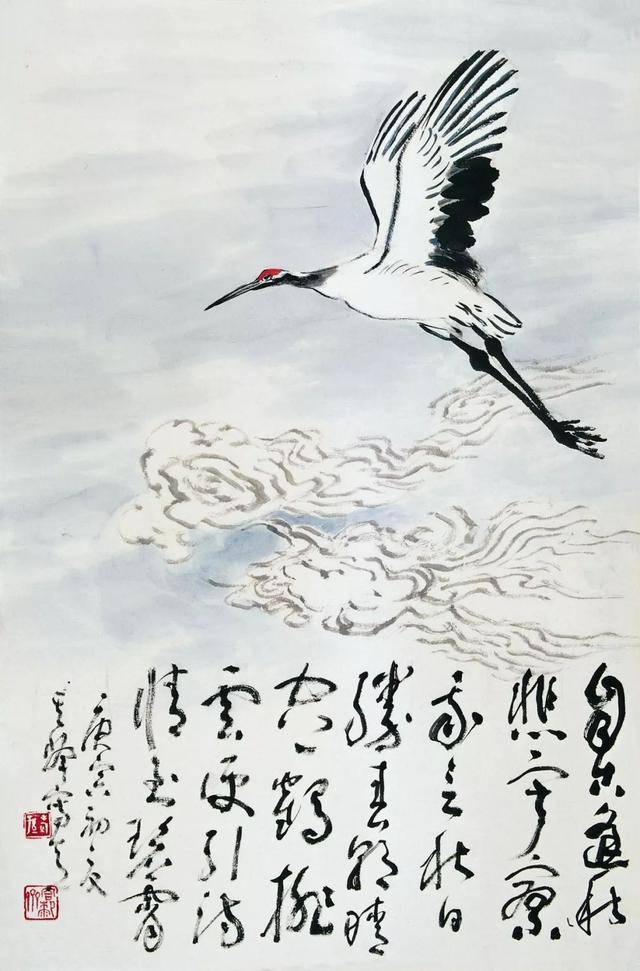 自古逢秋
悲寂寥
我言秋日
勝春朝晴
空一鶴排
雲便引詩
情到碧霄
庚寅初
寫